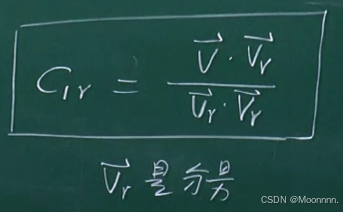 C₁ᵣ = (V⃗ · V⃗ᵣ) / (V⃗ᵣ · V⃗ᵣ)
V⃗ᵣ 是分量
CSDN @Moonnnn.